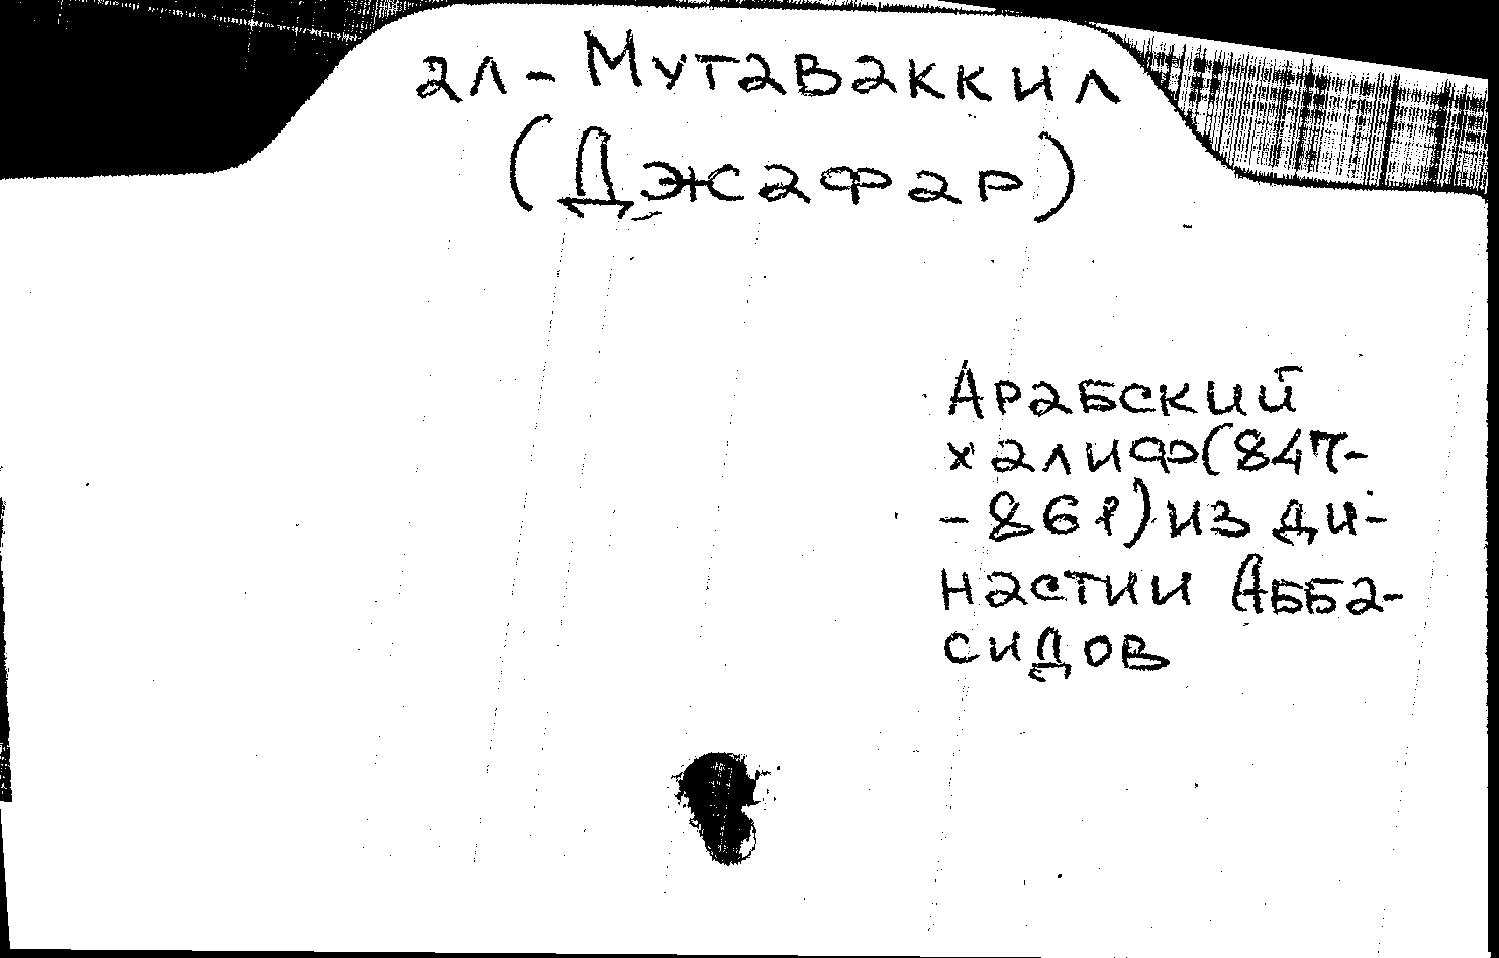 ал-Мутаваккил
(Джафар)
Арабский
халиф (847-
-861) из ди-
настии Абба-
сидов